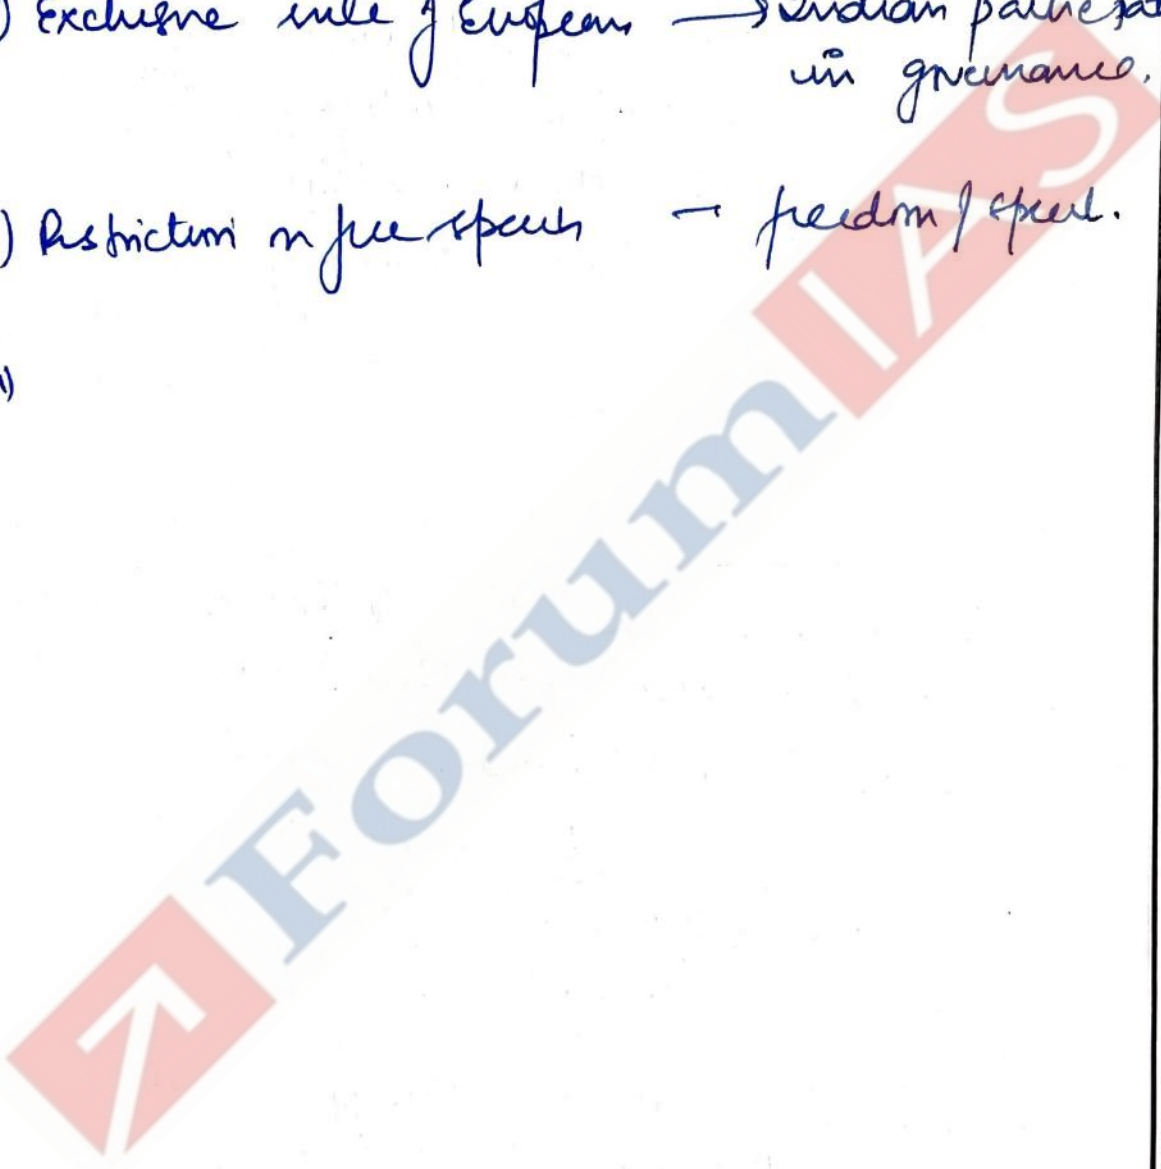 ) Exclusive rule of Europeans → Indian
in governance.
) Restriction on free speech → freedom of speech.
)
Forum IAS